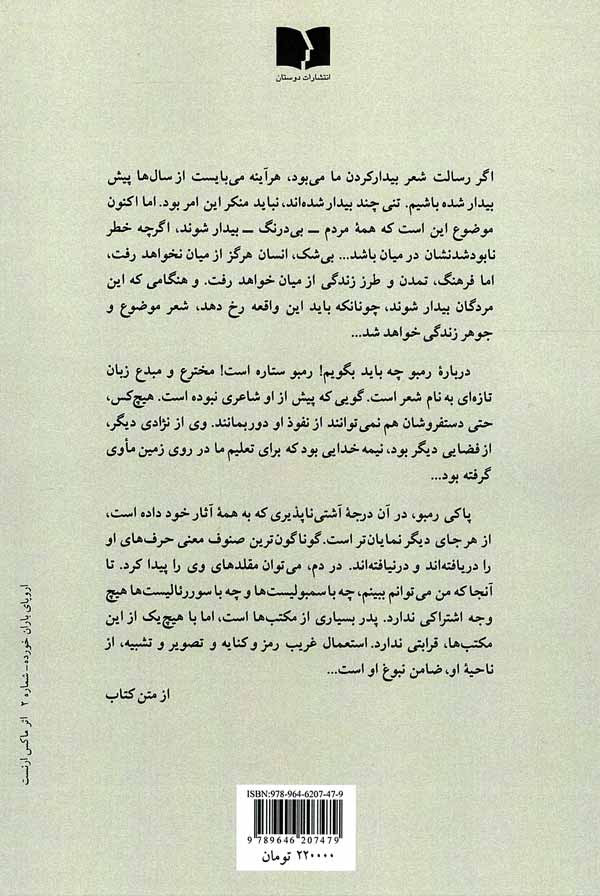 انتشارات دوستان
اگر رسالت شعر بیدارکردن ما می‌بود، هرآینه می‌بایست از سال‌ها پیش
بیدار شده باشیم. تنی چند بیدار شده‌اند، نباید منکر این امر بود. اما اکنون
موضوع این است که همهٔ مردم ــ بی‌درنگ ــ بیدار شوند، اگرچه خطر
نابودشدنشان در میان باشد... بی‌شک، انسان هرگز از میان نخواهد رفت،
اما فرهنگ، تمدن و طرز زندگی از میان خواهد رفت. و هنگامی که این
مردگان بیدار شوند، چونانکه باید این واقعه رخ دهد، شعر موضوع و
جوهر زندگی خواهد شد...
دربارهٔ رمبو چه باید بگویم! رمبو ستاره است! مخترع و مبدع زبان
تازه‌ای به نام شعر است. گویی که پیش از او شاعری نبوده است. هیچ‌کس،
حتی دستفروشان هم نمی‌توانند از نفوذ او دوربمانند. وی از نژادی دیگر،
از فضایی دیگر بود، نیمه خدایی بود که برای تعلیم ما در روی زمین مأوی
گرفته بود...
پاکی رمبو، در آن درجهٔ آشتی‌ناپذیری که به همهٔ آثار خود داده است،
از هر جای دیگر نمایان‌تر است. گوناگون‌ترین صنوف معنی حرف‌های او
را دریافته‌اند و درنیافته‌اند. در دم، می‌توان مقلدهای وی را پیدا کرد. تا
آنجا که من می‌توانم ببینم، چه با سمبولیست‌ها و چه با سوررئالیست‌ها هیچ
وجه اشتراکی ندارد. پدر بسیاری از مکتب‌ها است، اما با هیچ‌یک از این
مکتب‌ها، قرابتی ندارد. استعمال غریب رمز و کنایه و تصویر و تشبیه، از
ناحیهٔ او، ضامن نبوغ او است...
از متن کتاب
اروپای باران خورده – شماره ۲ اثر ماکس ارنست
ISBN:978-964-6207-47-9
9 789646 207479
۲۲۰۰۰۰ تومان